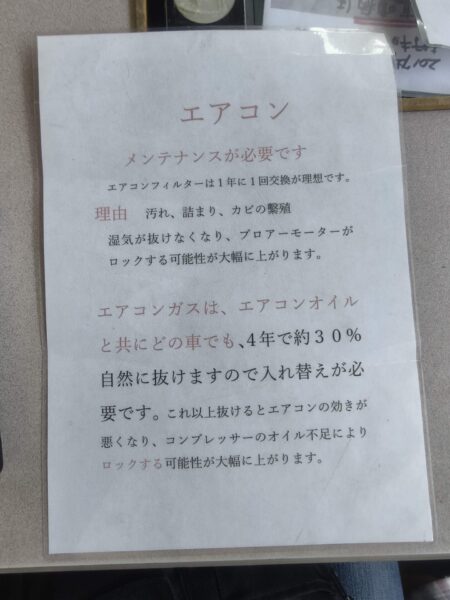 エアコン
メンテナンスが必要です
エアコンフィルターは１年に１回交換が理想です。
理由 汚れ、詰まり、カビの繫殖
湿気が抜けなくなり、ブロアーモーターが
ロックする可能性が大幅に上がります。
エアコンガスは、エアコンオイル
と共にどの車でも、4年で約３０%
自然に抜けますので入れ替えが必
要です。これ以上抜けるとエアコンの効きが
悪くなり、コンプレッサーのオイル不足により
ロックする可能性が大幅に上がります。